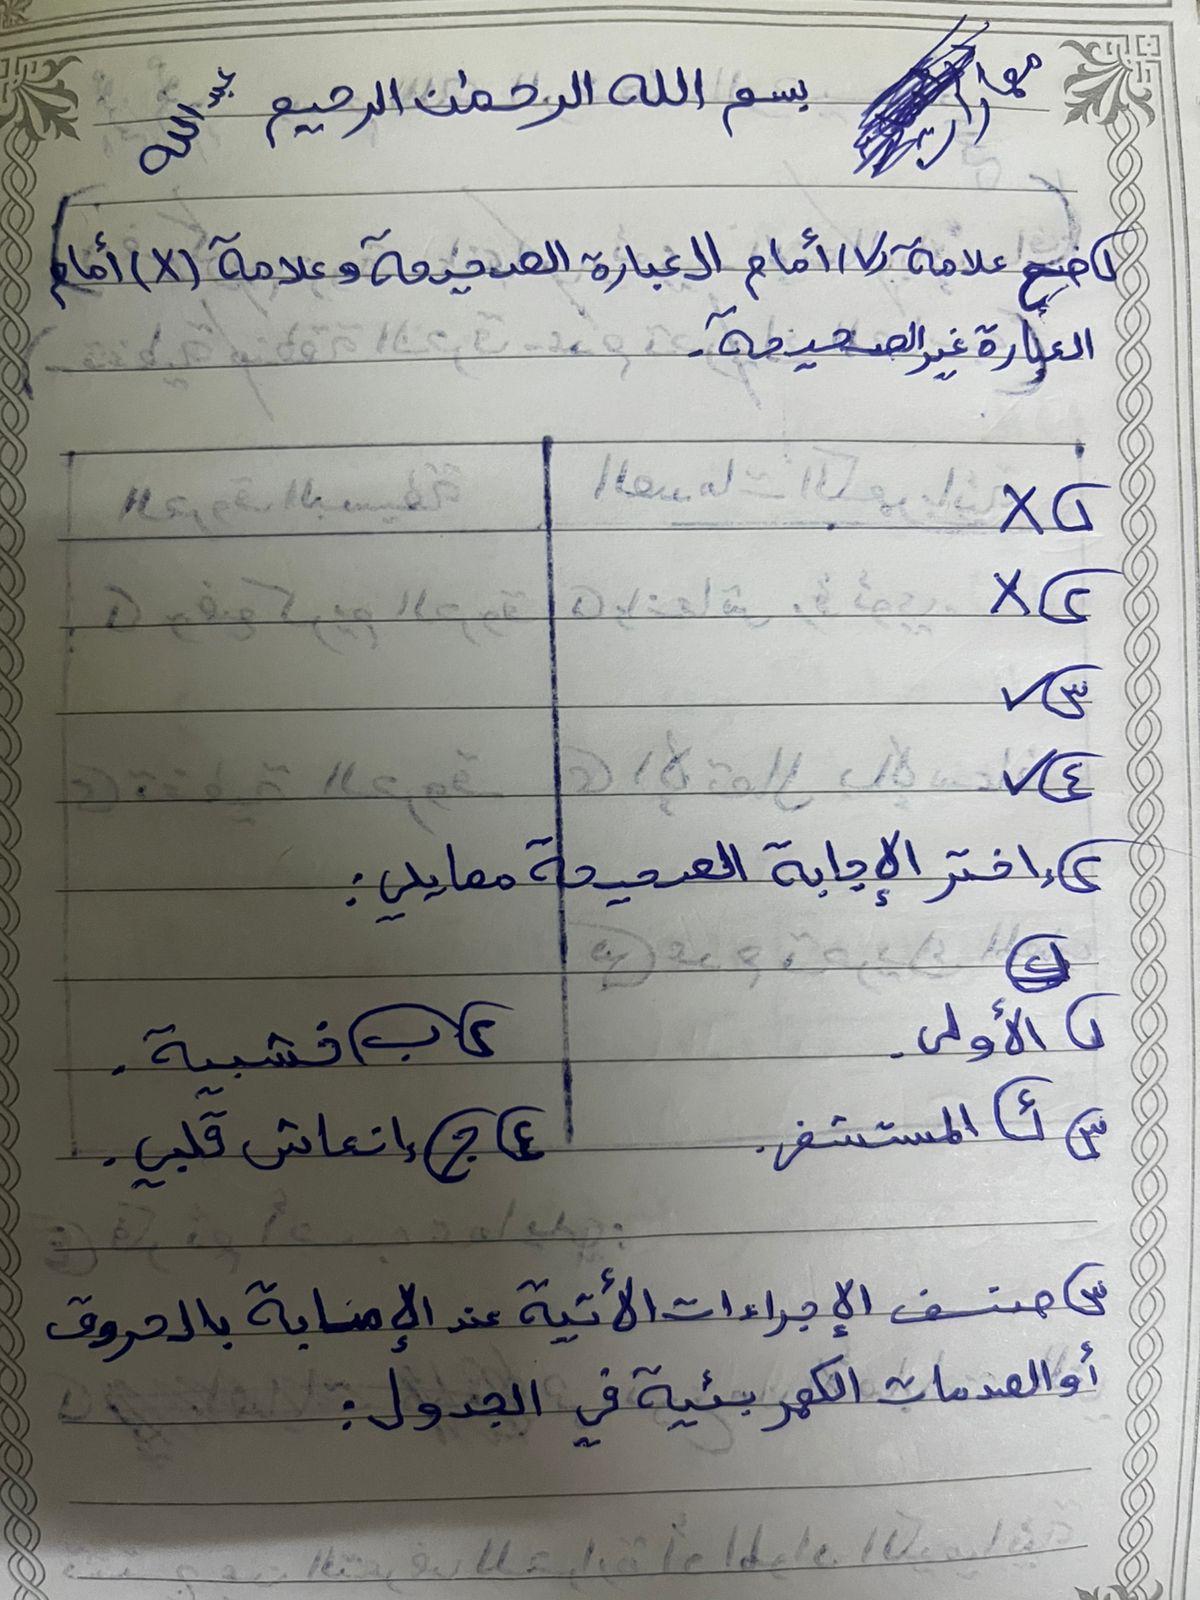 بسم الله الرحمن الرحيم
عبد الله
١) ضع علامة (√) أمام العبارة الصحيحة وعلامة (X) أمام
العبارة غير الصحيحة.
١) X
٢) X
٣) √
٤) √
٢) إختر الإجابة الصحيحة ممايلي:
١) الأولى. ٢) ب) خشبية.
٣) أ) المستشفى. ٤) ج) إنعاش قلبي.
٣) صنف الإجراءات الأتية عند الإصابة بالحروق
أو الصدمات الكهربئية في الجدول: